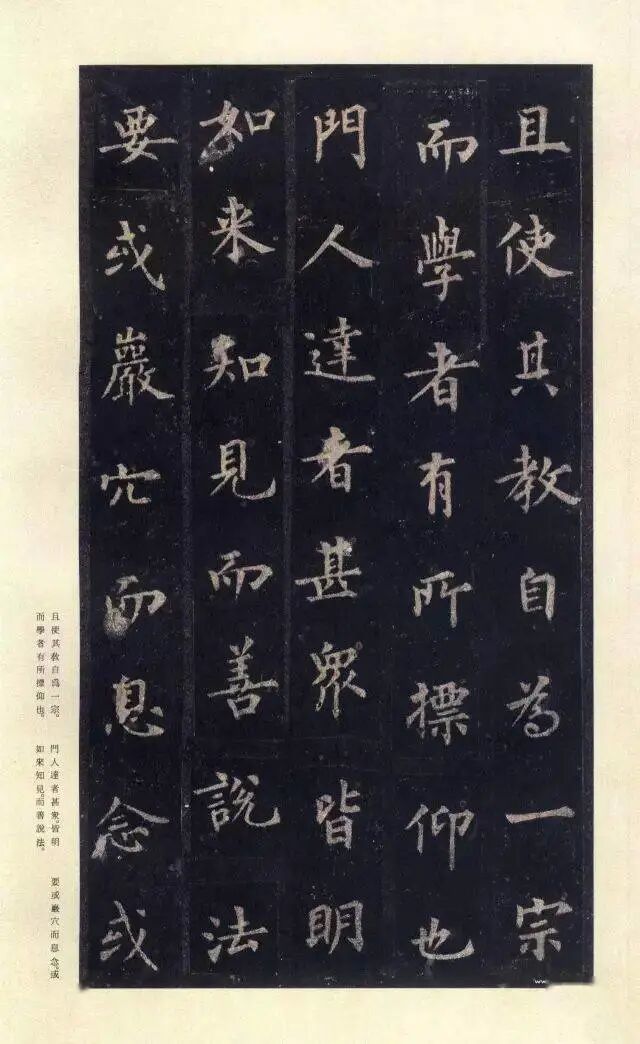 且使其教自為一宗
而學者有所標仰也
門人達者甚衆皆明
如来知見而善說法
要或巖穴而息念或
且使其敎自爲一宗。
而學者有所標仰也。
門人達者甚衆。皆明
如來知見。而善說法。
要或巖穴而息念。或